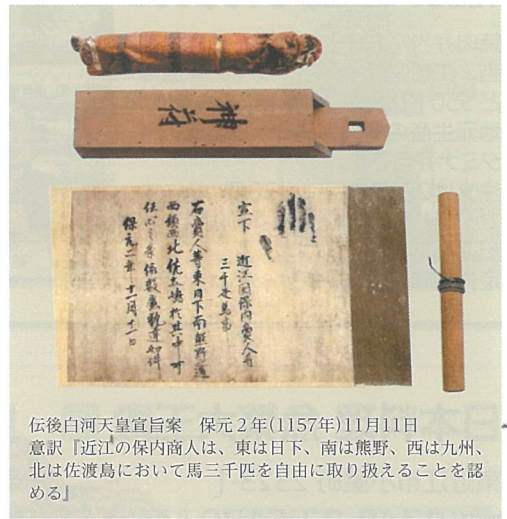 宣下 近江国保内商人等
三千疋馬事
右商人等東日下南熊野道
西鎮西北佐土嶋於其中可
保元二年十一月十一日
伝後白河天皇宣旨案　保元２年(1157年)11月11日
意訳『近江の保内商人は、東は日下、南は熊野、西は九州、
北は佐渡島において馬三千匹を自由に取り扱えることを認
める』